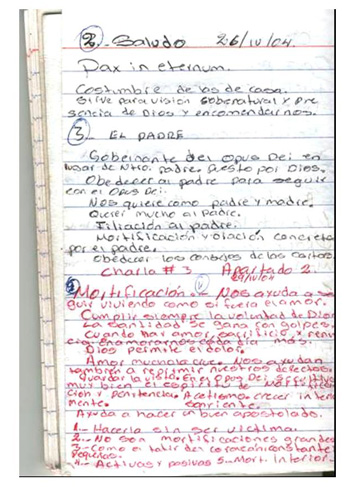 2.- Saludo 26/IV/04.
Pax in eternum.
Costumbre de los de casa.
Sirve para vision sobenatural y pre
sencia de Dios y encomendarnos.
3.- EL PADRE
Gobernante del Opus Dei en
lugar de Ntro. padre. Puesto por Dios.
Obedecer al padre para seguir
con el Opus Dei.
Nos quiere como padre y madre.
Querer mucho al Padre.
Filiación al padre.
Mortificación y oración concreta
por el padre.
Obedecer los consejos de las cartas.
Charla # 3 Apartado 2.
Mortificación. Nos ayuda a se
guir viviendo como si fuera el amor.
Cumplir siempre la voluntad de Dios
La santidad se gana con golpes.
cuando hay amor, sacrificio y renun
cia. Enamorarnos cada día más.
Dios permite el dolor.
Amor mucho la cruz. Nos ayudan
también a reprimir nuestros defectos.
guardar la vista. En el Opus Dei se
muy bien el espíritu de
ción y penitencia. Acetismo: crecer interna
mente. sonriente.
Ayuda a hacer un buen apostolado.
1.- Hacerla sin ser victima.
2.- No son mortificaciones grandes
3.- Como el latir del corazón constante
pequeñas.
4.- Activas y pasivas 5.- Mort. Interior.